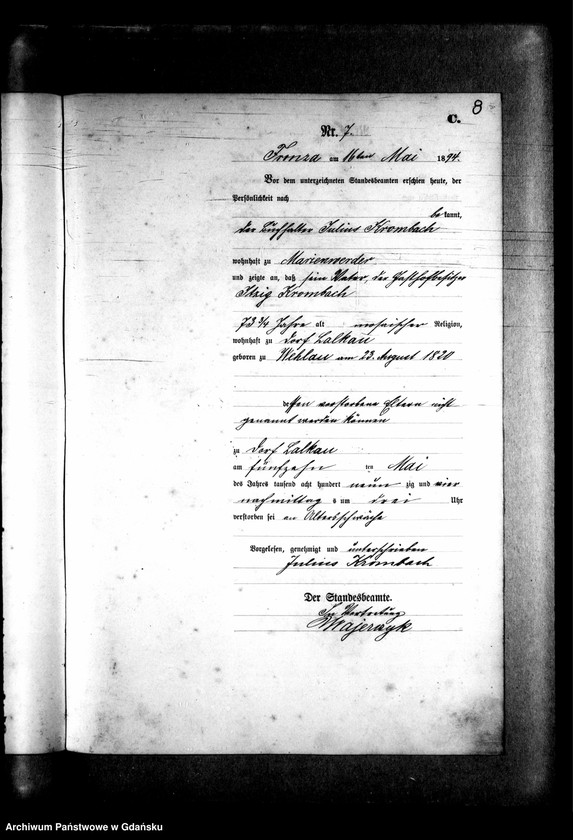 8
C.
Nr. 7.
Fronza am 16ten Mai 1894.
Vor dem unterzeichneten Standesbeamten erschien heute, der
Persönlichkeit nach
be kannt,
der Buchhalter Julius Krombach
wohnhaft zu Marienwerder
und zeigte an, daß sein Vater, der Gasthofbesitzer
Itzig Krombach
73 3/4 Jahre alt mosaischer Religion,
wohnhaft zu Dorf Lalkau
geboren zu Wehlau am 23. August 1820
dessen verstorbene Eltern nicht
genannt werden können
zu Dorf Lalkau
am fünfzehn ten Mai
des Jahres tausend acht hundert neun zig und vier
nachmittag s um drei Uhr
verstorben sei an Altersschwäche
Vorgelesen, genehmigt und unterschrieben
Julius Krombach
Der Standesbeamte.
In Vertretung
Majewsyk
Archiwum Państwowe w Gdańsku